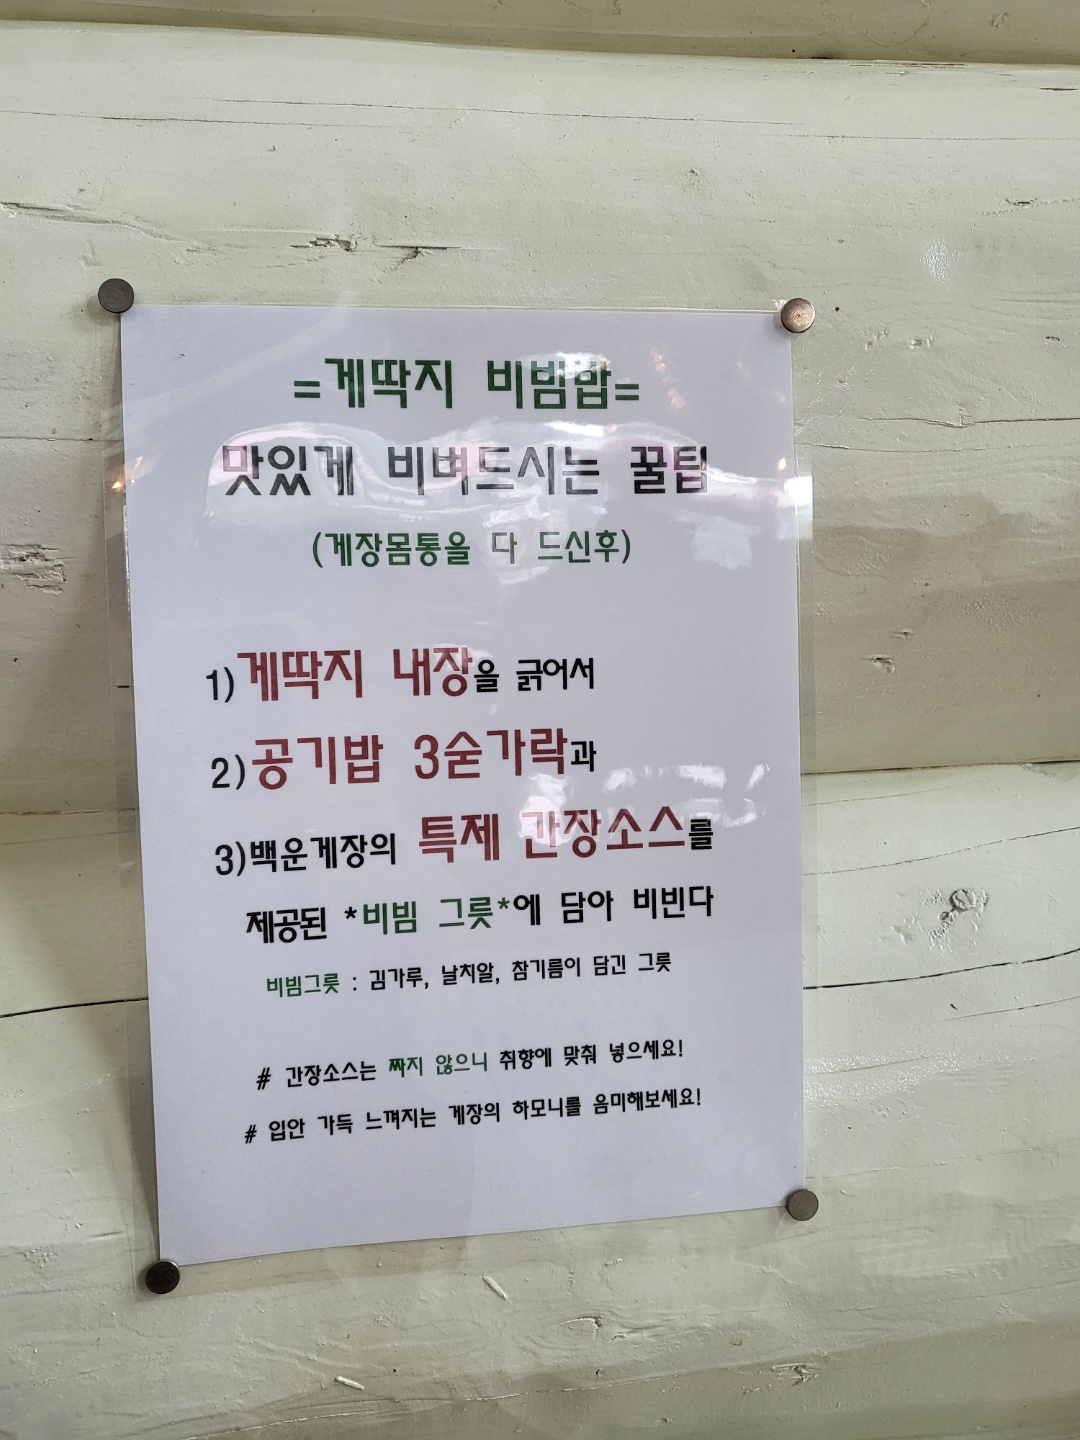 =게딱지 비빔밥=
맛있게 비벼드시는 꿀팁
(게장몸통을 다 드신후)
1)게딱지 내장을 긁어서
2)공기밥 3숟가락과
3)백운게장의 특제 간장소스를
제공된 *비빔 그릇*에 담아 비빈다
비빔그릇 : 김가루, 날치알, 참기름이 담긴 그릇
# 간장소스는 짜지 않으니 취향에 맞춰 넣으세요!
# 입안 가득 느껴지는 게장의 하모니를 음미해보세요!